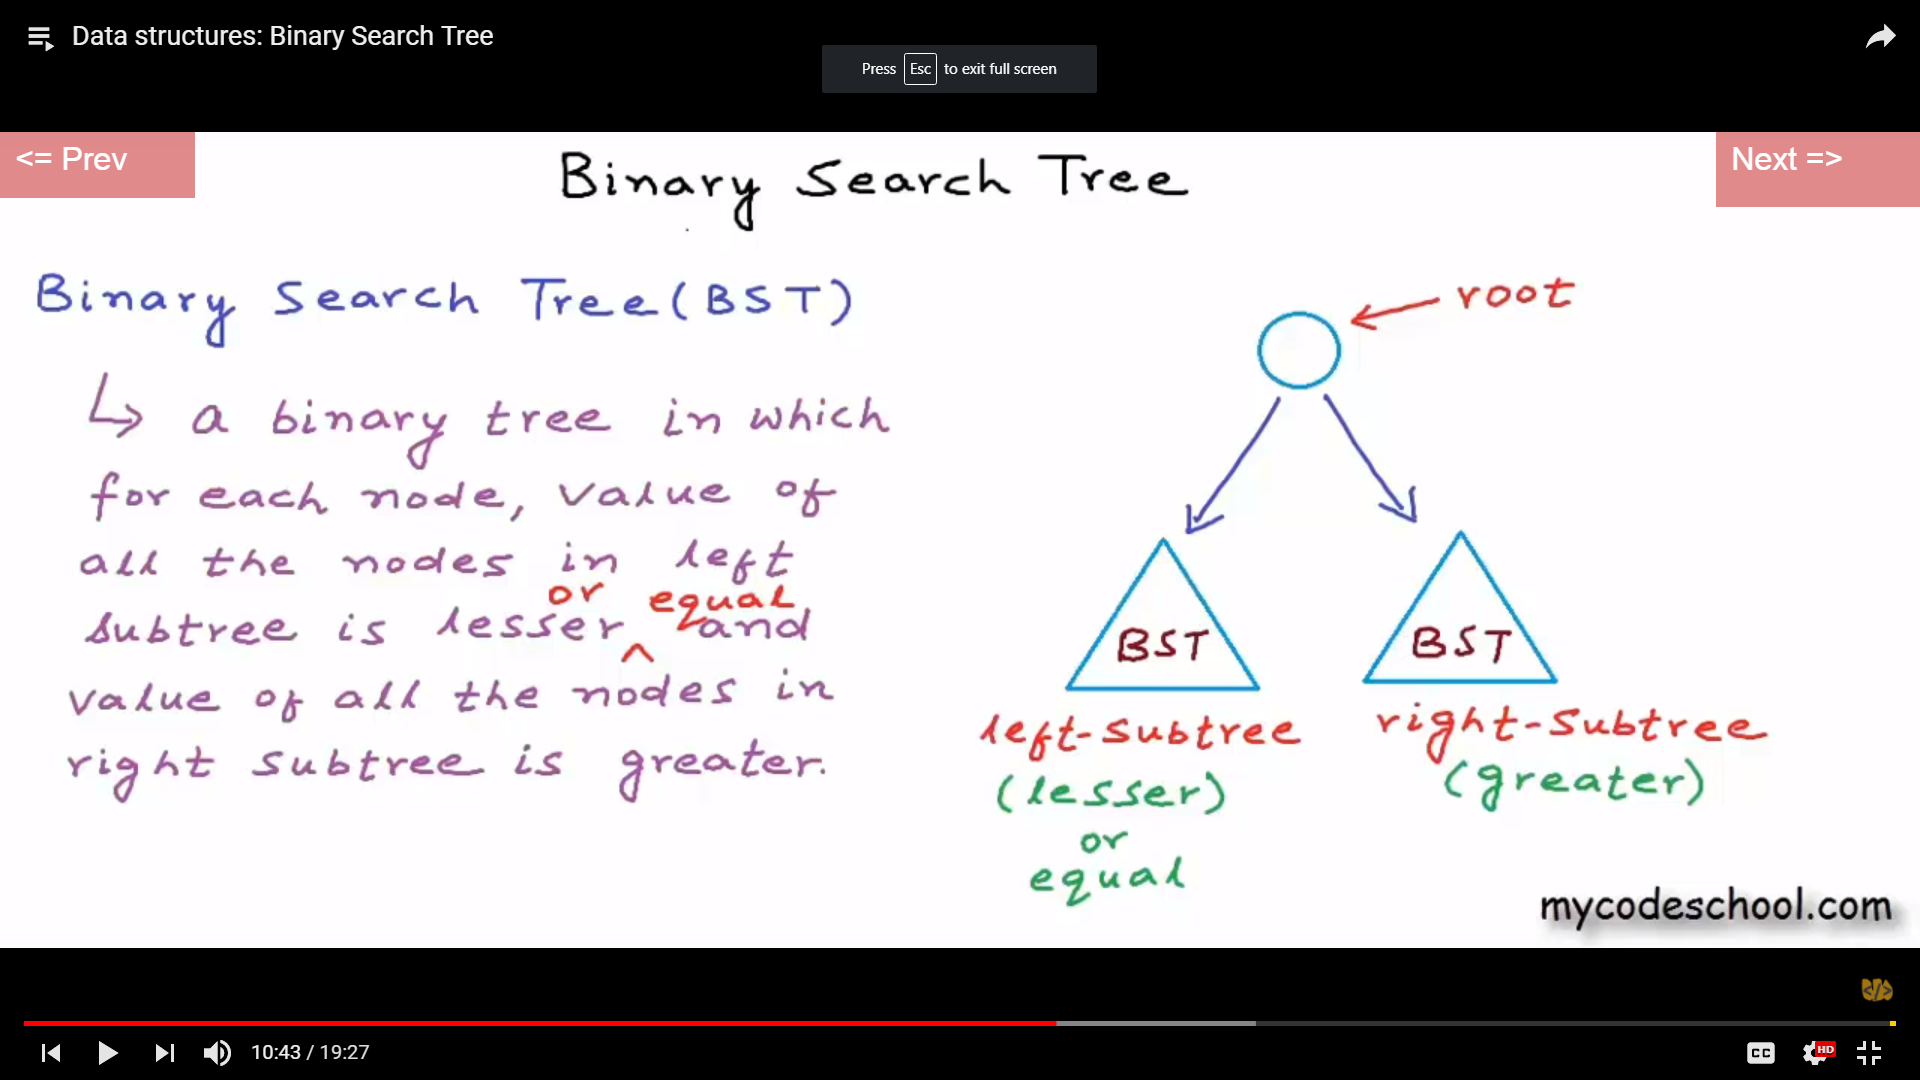 Data structures: Binary Search Tree
Press Esc to exit full screen
<= Prev
Next =>
Binary Search Tree
Binary Search Tree (BST)
a binary tree in which
for each node, value of
all the nodes in left
or equal
subtree is lesser ^ and
value of all the nodes in
right subtree is greater.
root
BST
BST
left-subtree
right-subtree
(lesser)
(greater)
or
equal
mycodeschool.com
</>
10:43 / 19:27
CC
HD